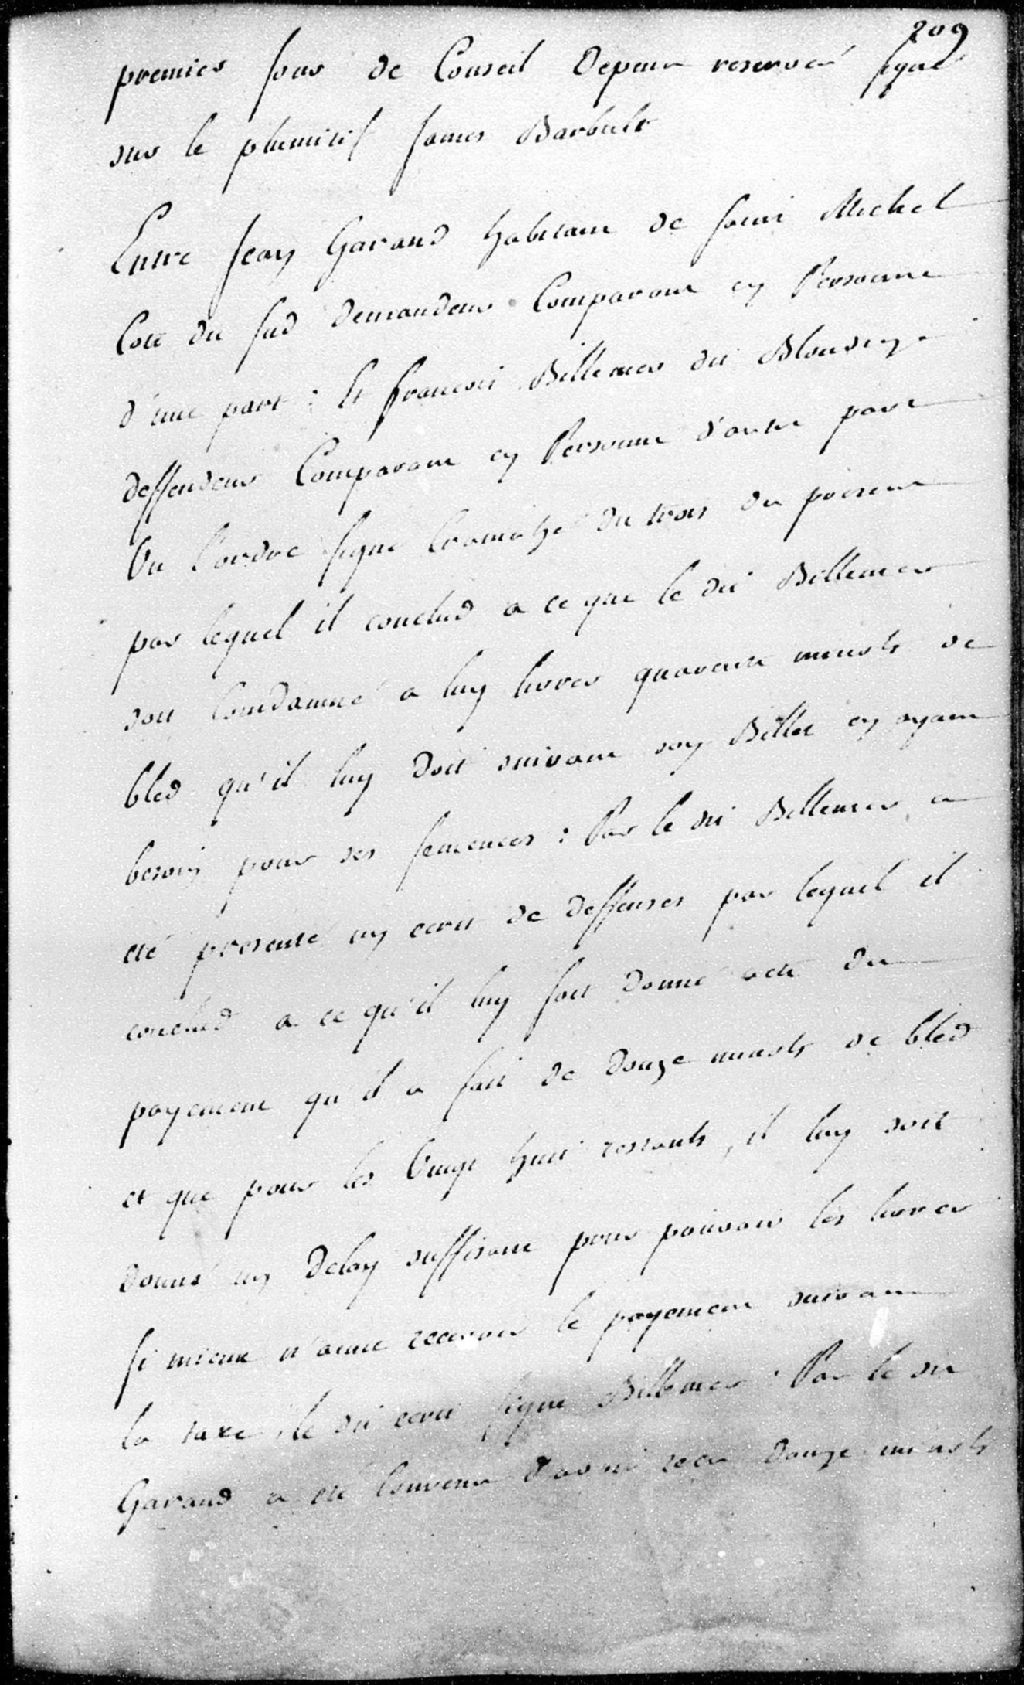 209
premier jour de Conseil Depens reservés signé
sur le plumitif James Barbutt
Entre Jean Garaud habitant de saint Michel
Cote du sud demandeur Comparant en Personne
d'une part : Et francois Billemer dit
deffendeur Comparant en Personne d'autre part
Vu l'ordre signé Cramahé du trois du présent
par lequel il conclud a ce que le dit Billemer
soit Condamné a luy livrer quarante minots de
bled qu'il luy doit suivant son Billet en ayant
besoin pour ses semences : Par le dit Billemer a
eté presenté un ecrit de deffenses par lequel il
conclud a ce qu'il luy soit donné acte du
payement qu'il a fait de douze minots de bled
et que pour les Vingt huit restants, il luy soit
donné un delay suffisant pour pouvoir les livrer
si mieux n'aime recevoir le payement suivant
la taxe, le dit ecrit signé Billemer : Par le dit
Garaud a eté Convenu d'avoir recu douze minots